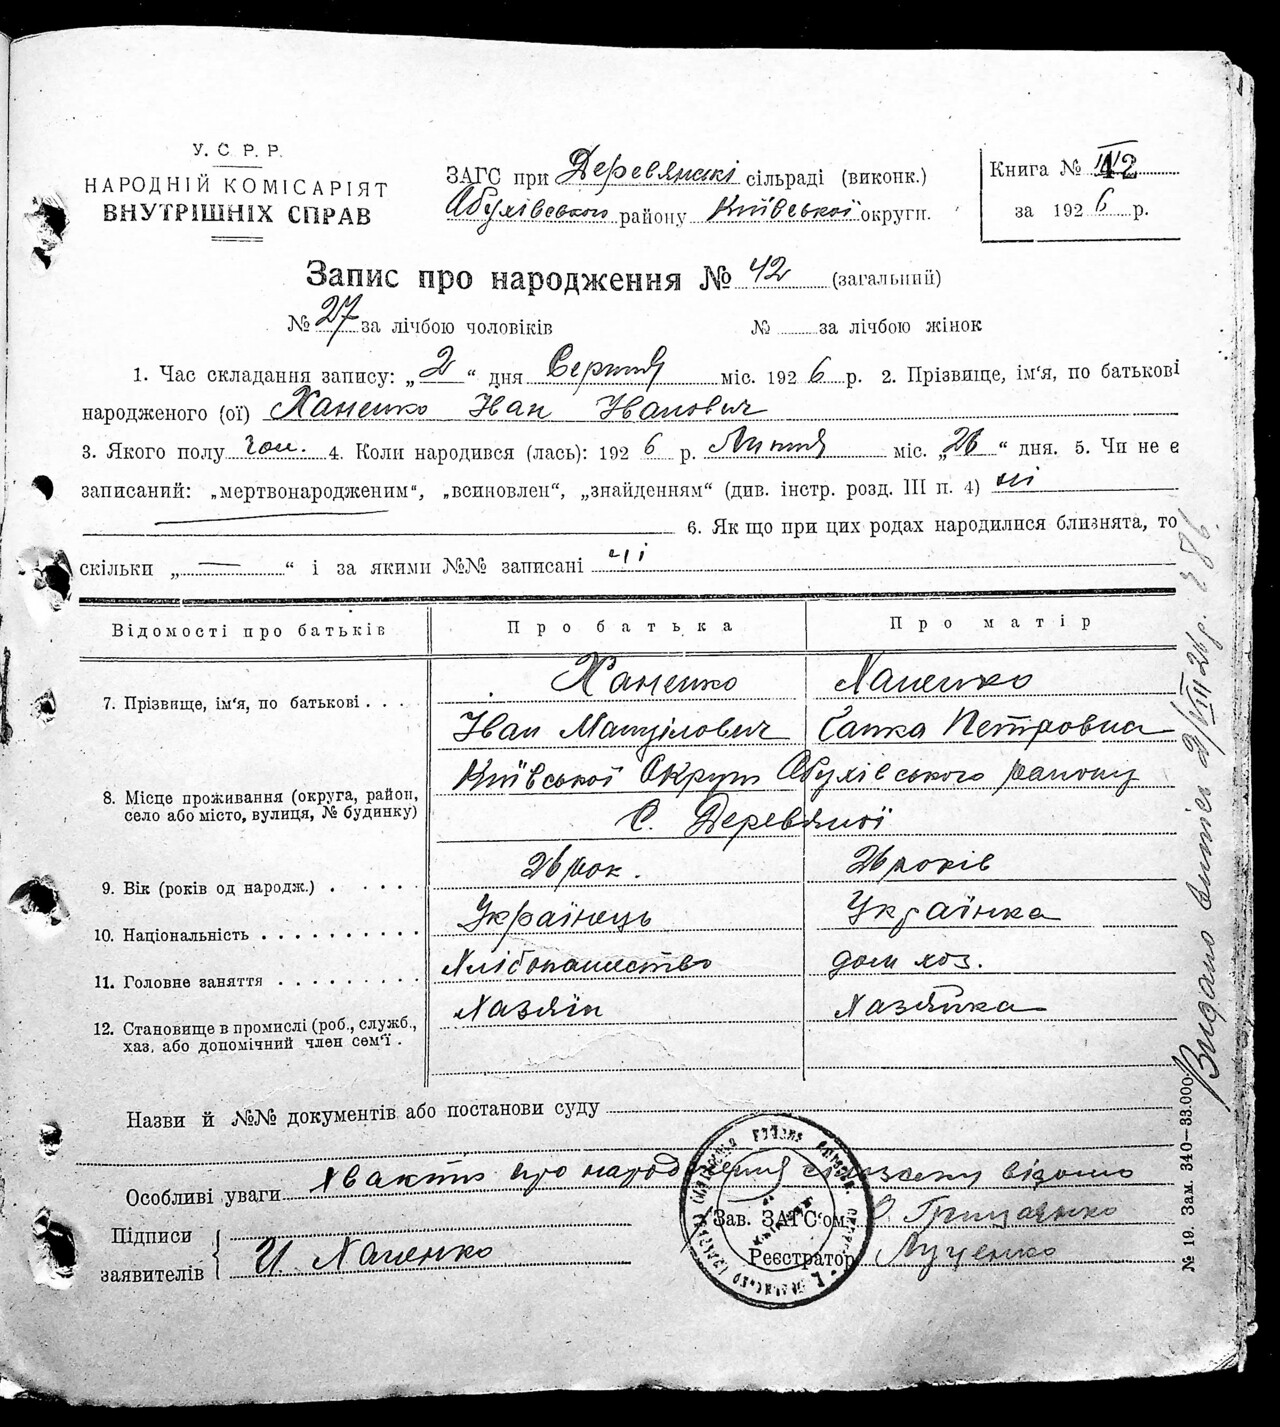 У. С. Р. Р.
НАРОДНІЙ КОМІСАРІЯТ
ВНУТРІШНІХ СПРАВ
ЗАГС при Деревянскі сільраді (виконк.)
Обухівського району Київської округи.
Книга № III 42
за 1926 р.
Запис про народження № 42 (загальний)
№ 27 за лічбою чоловіків № за лічбою жінок
1. Час складання запису: „2“ дня Серпня міс. 1926 р. 2. Прізвище, ім'я, по батькові
народженого (ої) Ханенко Іван Іванович
3. Якого полу чол. 4. Коли народився (лась): 1926 р. Липня міс. „26“ дня. 5. Чи не є
записаний: „мертвонародженим“, „всиновлен“, „знайденням“ (див. інстр. розд. III п. 4) ні
6. Як що при цих родах народилися близнята, то
скільки „—“ і за якими №№ записані ні
Відомості про батьків Про батька Про матір
7. Прізвище, ім'я, по батькові . . . Ханенко Ханенко
Іван Петровна
8. Місце проживання (округа, район, село або місто, вулиця, № будинку) Київської Округи Обухівського району
С. Деревяної
9. Вік (років од народж.) . . . . . 26 рок. 26 років
10. Національність . . . . . . . . . . Українець Українка
11. Головне заняття . . . . . . . . . Хлібопашество дом хоз.
12. Становище в промислі (роб., служб., хаз. або допомічний член сем'ї . Хазяїн Хазяйка
Назви й №№ документів або постанови суду
Особливі уваги про народження
Підписи
заявителів И Ханенко
Зав. ЗАГС'ом
Реєстратор Луценко
№ 19. Зам. 340—33.000.
Видано випись 2/VIII 26 р.